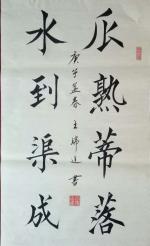 瓜熟蒂落
水到渠成
庚子孟春
王 书